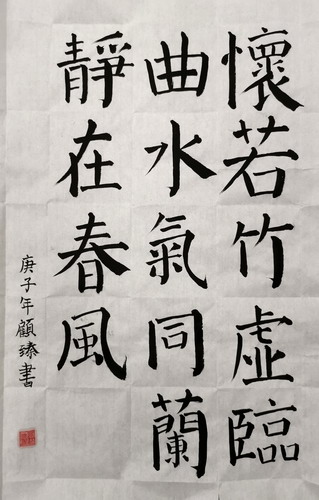 懷若竹虛臨
曲水氣同蘭
靜在春風
庚子年顧臻書